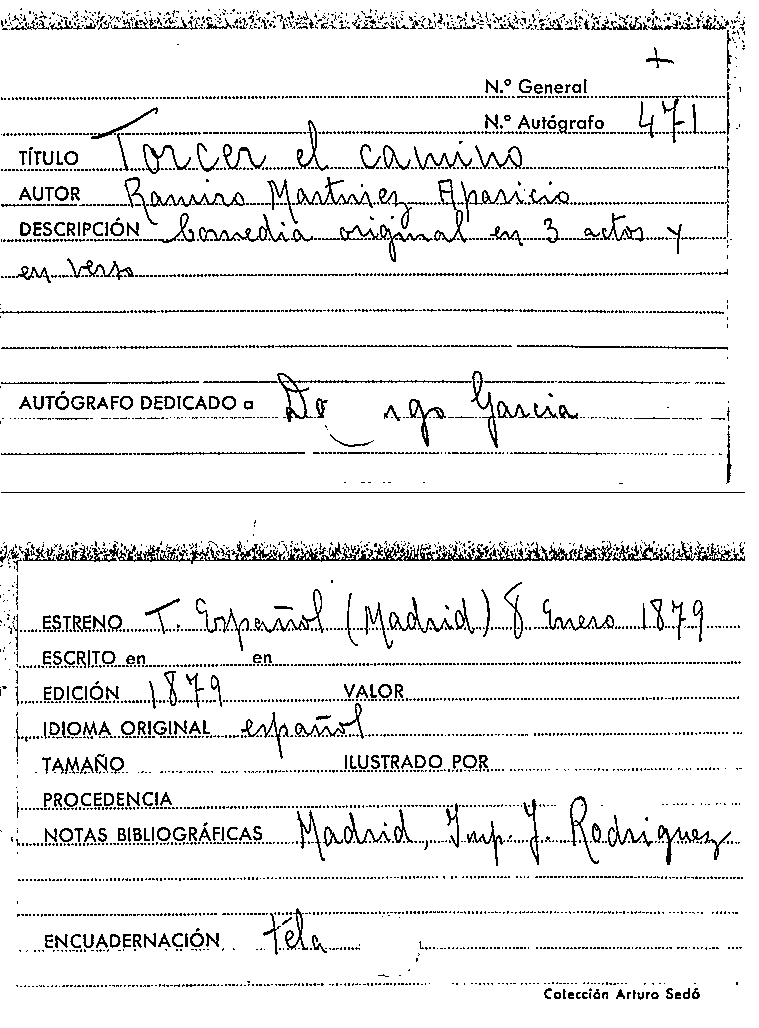 +
N.º General
N.º Autógrafo 471
TÍTULO Torcer el camino
AUTOR Ramiro Martinez Aparicio
DESCRIPCIÓN Comedia original en 3 actos y
en verso
AUTÓGRAFO DEDICADO a Do rgo Garcia
ESTRENO T. Español (Madrid) 8 Enero 1879
ESCRITO en en
EDICIÓN 1879 VALOR
IDIOMA ORIGINAL español
TAMAÑO ILUSTRADO POR
PROCEDENCIA
NOTAS BIBLIOGRÁFICAS Madrid, Imp. J. Rodriguez
ENCUADERNACIÓN tela
Colección Arturo Sedó